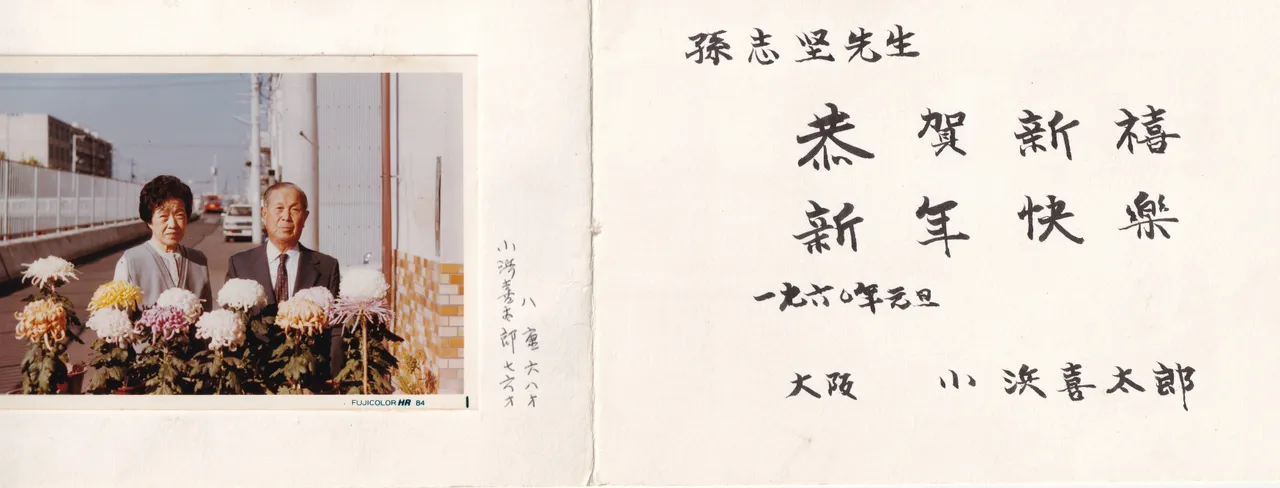 FUJICOLOR HR 84
八重 六八才
小浜喜太郎 七六才
孫志坚先生
恭賀新禧
新年快樂
一九六〇年元旦
大阪 小浜喜太郎